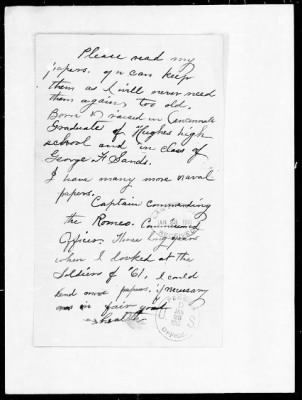 Please read my
papers. you can keep
them as I will never need
them again, too old.
Born & raised in Cincinnati
Graduate of Hughes high
school and in class of
George F. Sands.
I have many more naval
papers.
Captain commanding
the Romeo. Commissioned
Officer. Those long years
when I looked at the
Soldiers of '61, I could
send more papers, if necessary
in fair
health